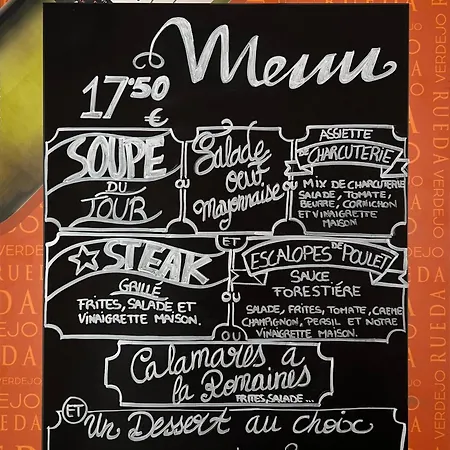 Menu
17'50
€
SOUPE
DU
JOUR
OU
Salade
Oeuf
Mayonnaise
OU
ASSIETTE
DE CHARCUTERIE
MIX DE CHARCUTERIE
SALADE, TOMATE,
BEURRE, CORNICHON
ET VINAIGRETTE
MAISON
ET
STEAK
GRILLÉ
FRITES, SALADE ET
VINAIGRETTE MAISON.
OU
ESCALOPES DE POULET
SAUCE
FORESTIÉRE
SALADE, FRITES, TOMATE, CREME
CHAMPIGNON, PERSIL ET NOTRE
VINAIGRETTE MAISON.
OU
Calamares a
la Romaines
FRITES, SALADE...
ET
Un Dessert au choix
RUEDA
VERDEJO
RUEDA
VERDEJO